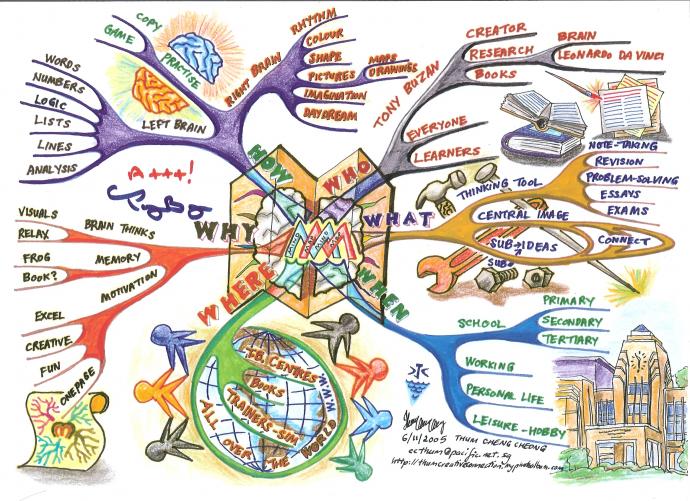 HOW
COPY
GAME
PRACTISE
RIGHT BRAIN
RHYTHM
COLOUR
SHAPE
PICTURES
MAPS
DRAWINGS
IMAGINATION
DAYDREAM
LEFT BRAIN
WORDS
NUMBERS
LOGIC
LISTS
LINES
ANALYSIS
A+++!
WHO
TONY BUZAN
CREATOR
RESEARCH
BOOKS
BRAIN
LEONARDO DA VINCI
EVERYONE
LEARNERS
WHAT
THINKING TOOL
CENTRAL IMAGE
SUB→IDEAS
SUB
CONNECT
NOTE-TAKING
REVISION
PROBLEM-SOLVING
ESSAYS
EXAMS
WHEN
SCHOOL
PRIMARY
SECONDARY
TERTIARY
WORKING
PERSONAL LIFE
LEISURE-HOBBY
WHERE
T.B. CENTRES
BOOKS
TRAINERS-SIM
ALL OVER
THE WORLD
W.W.W.
WHY
BRAIN THINKS
VISUALS
RELAX
MEMORY
FROG
BOOK?
MOTIVATION
EXCEL
CREATIVE
FUN
ONE PAGE
6/11/2005 THUM CHENG CHEONG
ecthum@pacific.net.sg